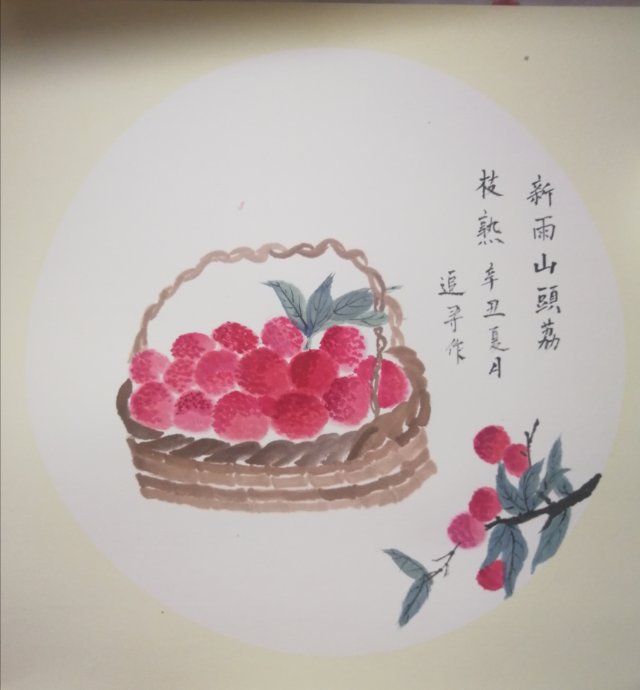 新雨山頭荔
枝熟辛丑夏月
追寻作